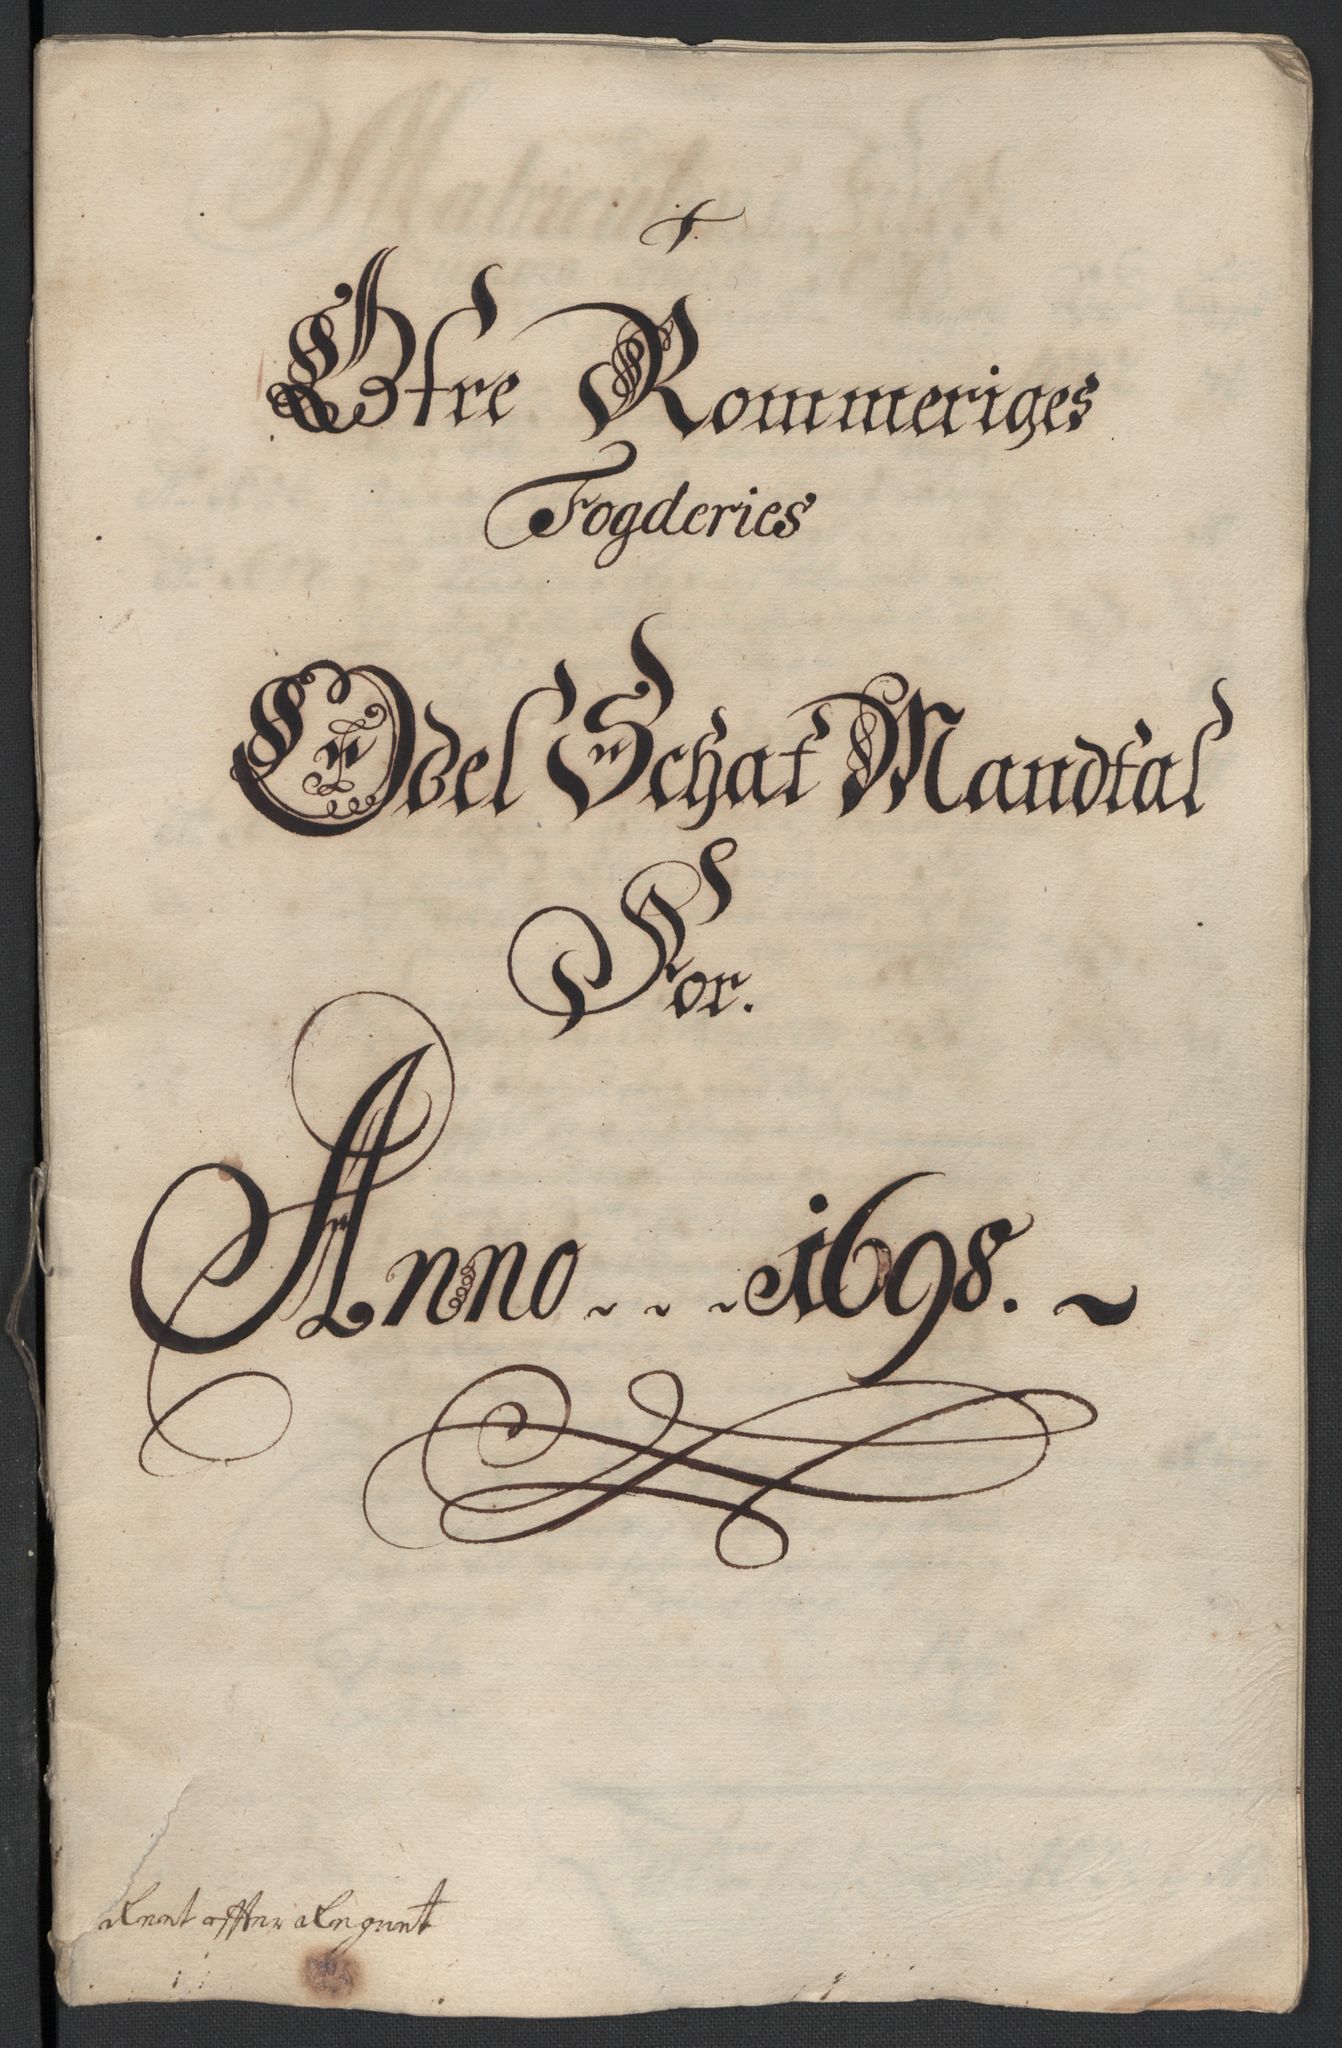 Øfre Rommeriges
Fogderies
Odel Schat Mandtal
For.
Anno... 1698. ~